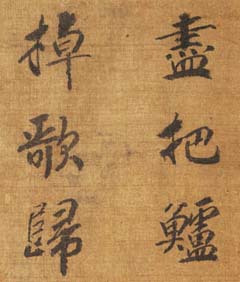 盡把鱸
掉歌歸